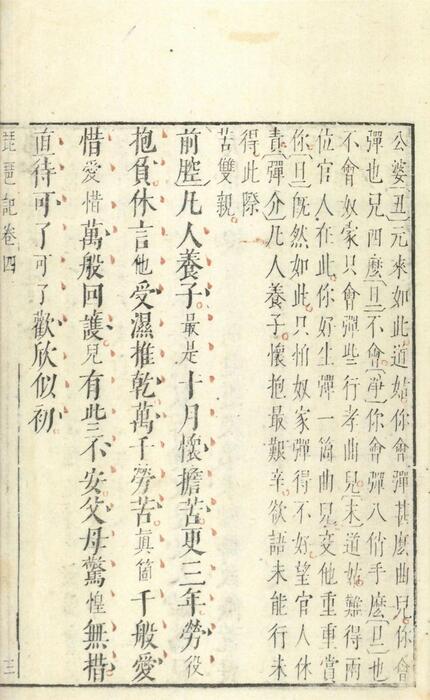 公婆〔丑〕元來如此道姑你會彈甚麼曲兒你會
彈也兒四麼〔旦〕不會〔淨〕你會彈八俏手麼〔旦〕也
不會奴家只會彈些行孝曲兒〔末〕道姑難得兩
位官人在此你好生彈一箇曲兒交他重重賞
你〔旦〕旣然如此只怕奴家彈得不好望官人休
責〔彈介〕凡人養子懷抱最艱辛欲語未能行未
得此際
苦雙親
前腔〕凡人養子最是十月懷擔苦更三年勞役
抱負休言他受濕推乾萬千勞苦真箇千般愛
惜愛惜萬般回護兒有些不安父母驚惶無措
直待可了可了歡欣似初
琵琶記卷四
三